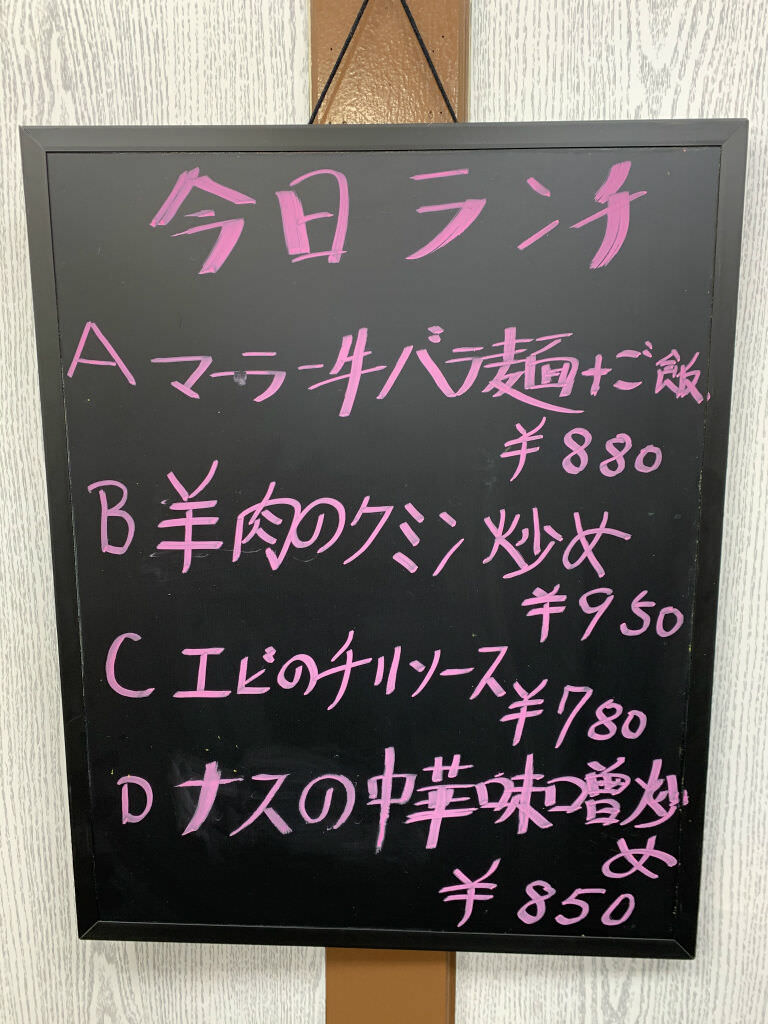 今日ランチ
A マーラー牛バラ麺+ご飯
¥880
B 羊肉のクミン炒め
¥950
C エビのチリソース
¥780
D ナスの中華味噌炒
め
¥850